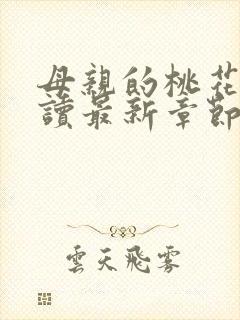 母親的桃花
讀最新章節
雲天飛霧